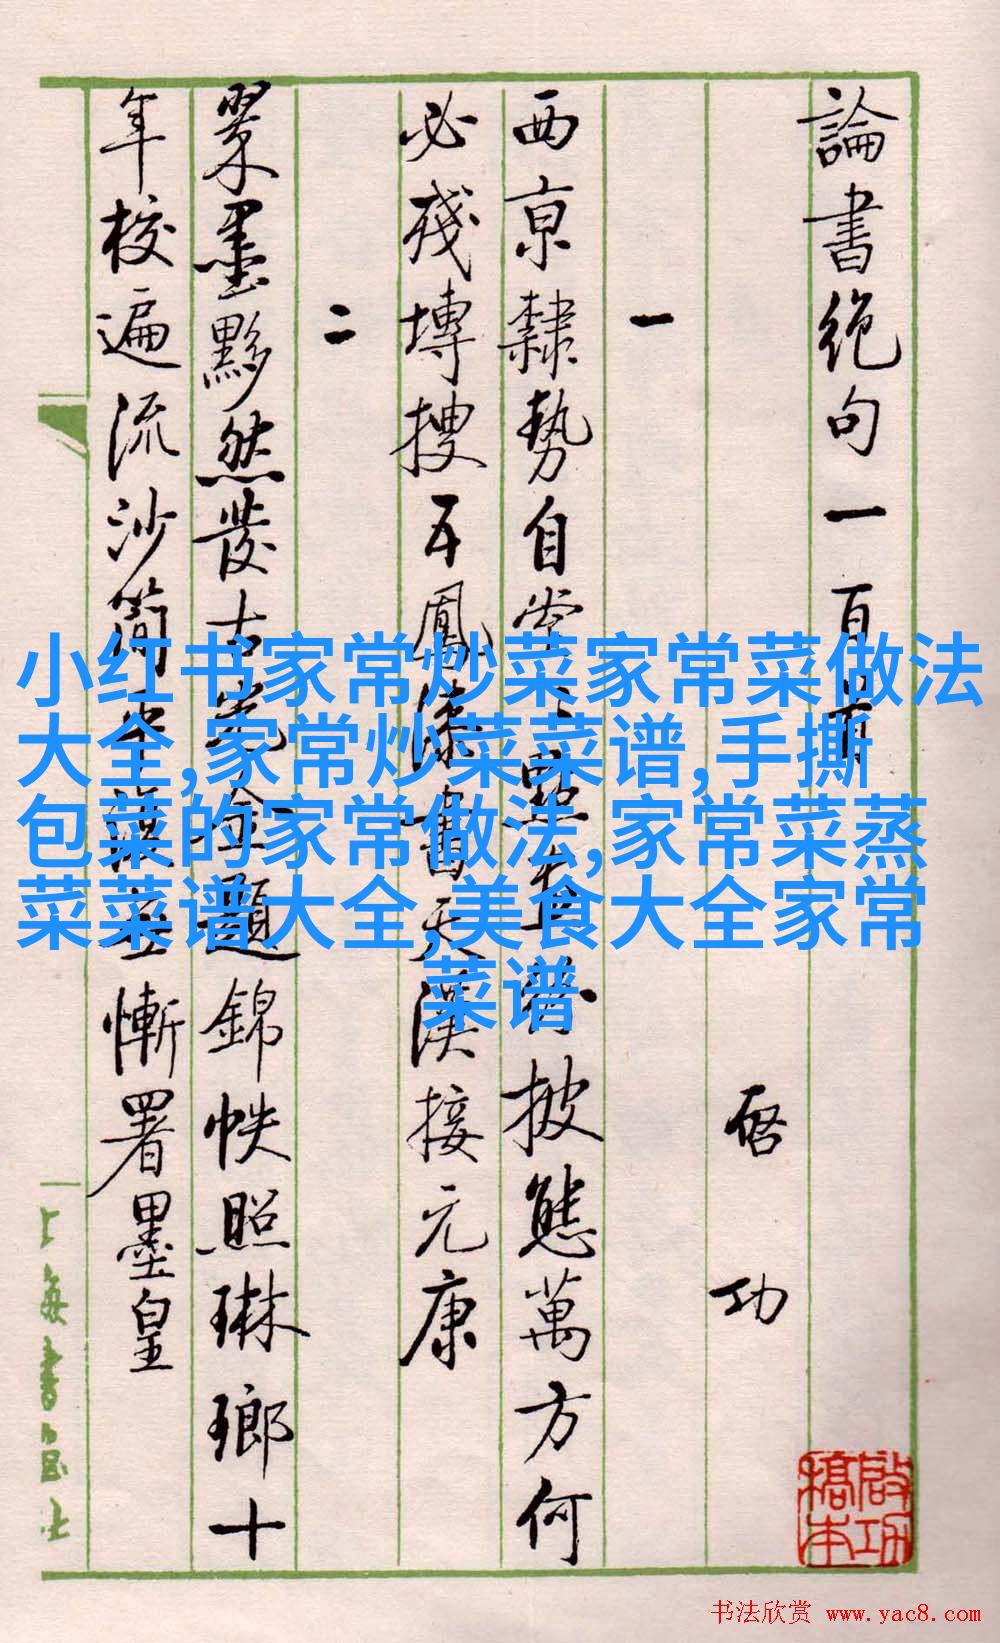 論書絶句一百首
启功
一
西京隸勢自堂堂點畫紛披態萬方何
必殘塼搜五鳳漆書天漢接元康
二
翠墨黟然發古光金題錦帙照琳瑯十
年校遍流沙簡平復無慚署墨皇
小红书家常炒菜家常菜做法
大全,家常炒菜菜谱,手撕
包菜的家常做法,家常菜蒸
菜菜谱大全,美食大全家常
菜谱
书法欣赏 www.yac8.com